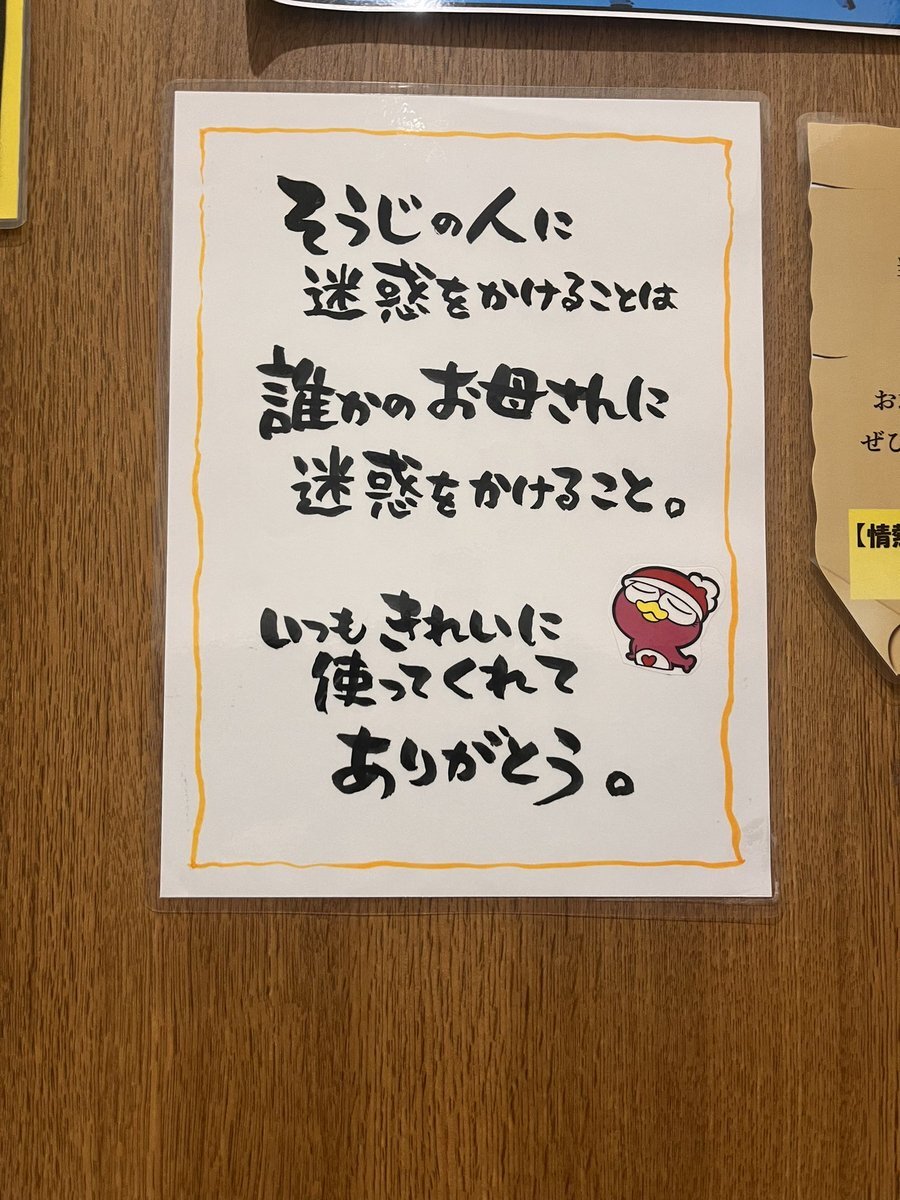 そうじの人に
迷惑をかけることは
誰かのお母さんに
迷惑をかけること。
いつもきれいに
使ってくれて
ありがとう。
お
ぜひ
【情熱